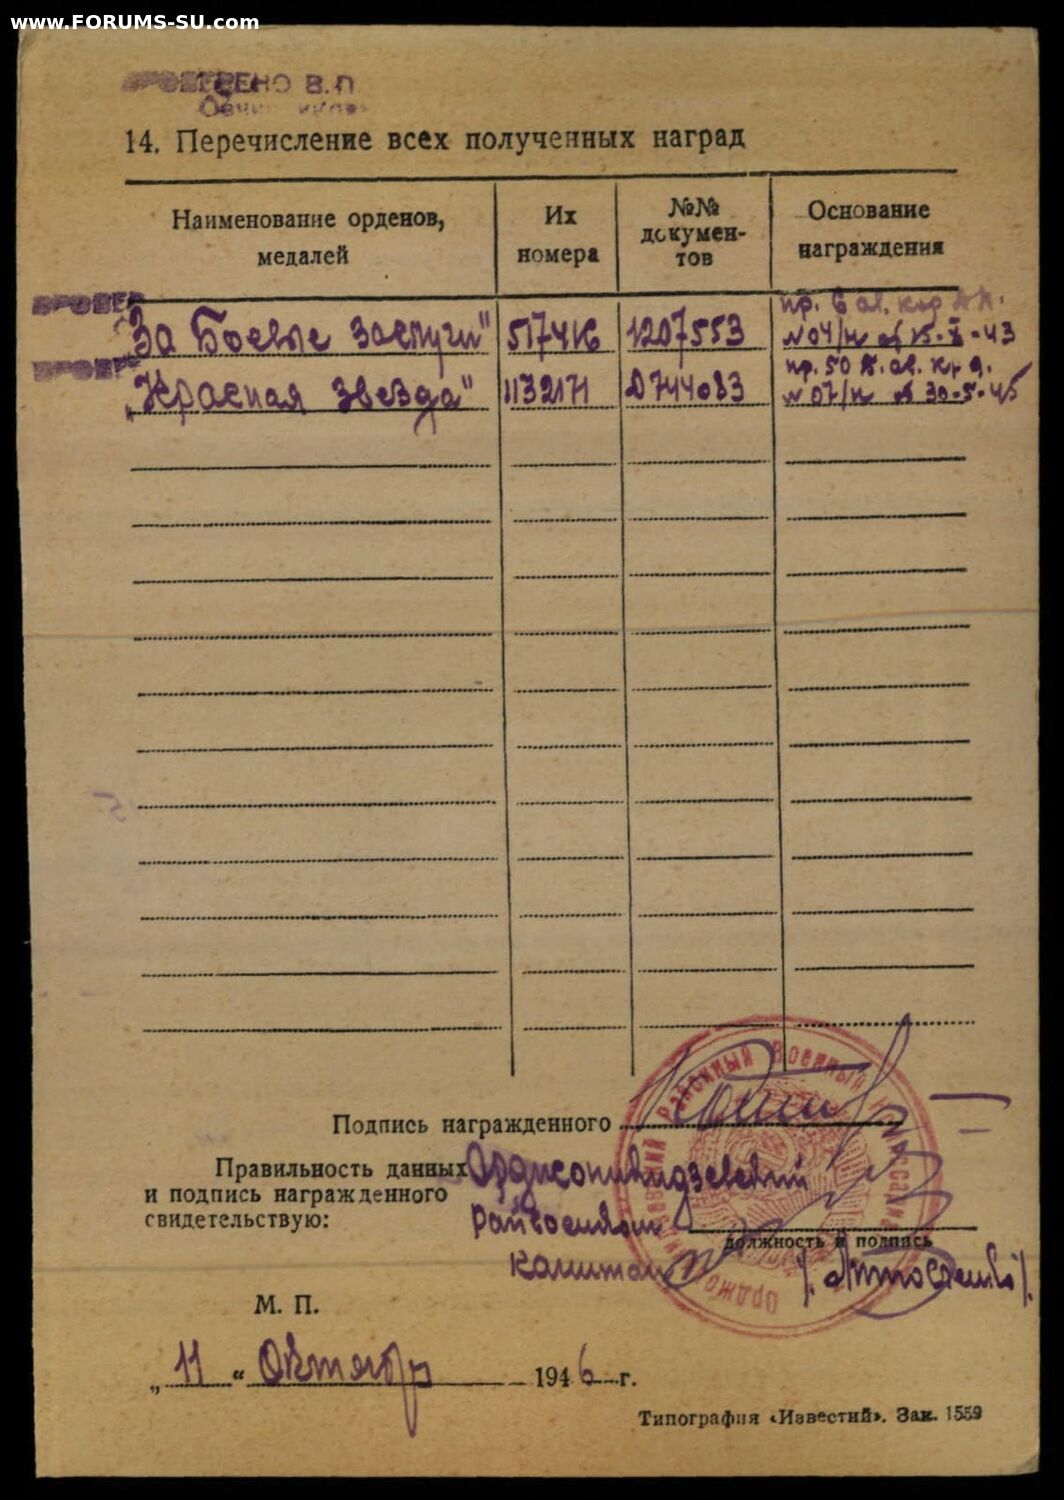 www.FORUMS-SU.com
В.П.
14. Перечисление всех полученных наград
Наименование орденов, медалей
Их номера
№№ докумен-тов
Основание награждения
ПРОВЕР
пр. 6 ав. кор
„За Боевые Заслуги" 517416 1207553 №04/н от 15.X-43
пр. 50 ав.
„Красная Звезда" 1132171 Д744083 №07/н от 30.5.45
Подпись награжденного
Правильность данных Орджоникидзевский
и подпись награжденного
свидетельствую: Райвоенком
должность и подпись
капитан
Районный Военный Комиссариат
М. П.
„11" Октября 1946 г.
Типография «Известий». Зак. 1559